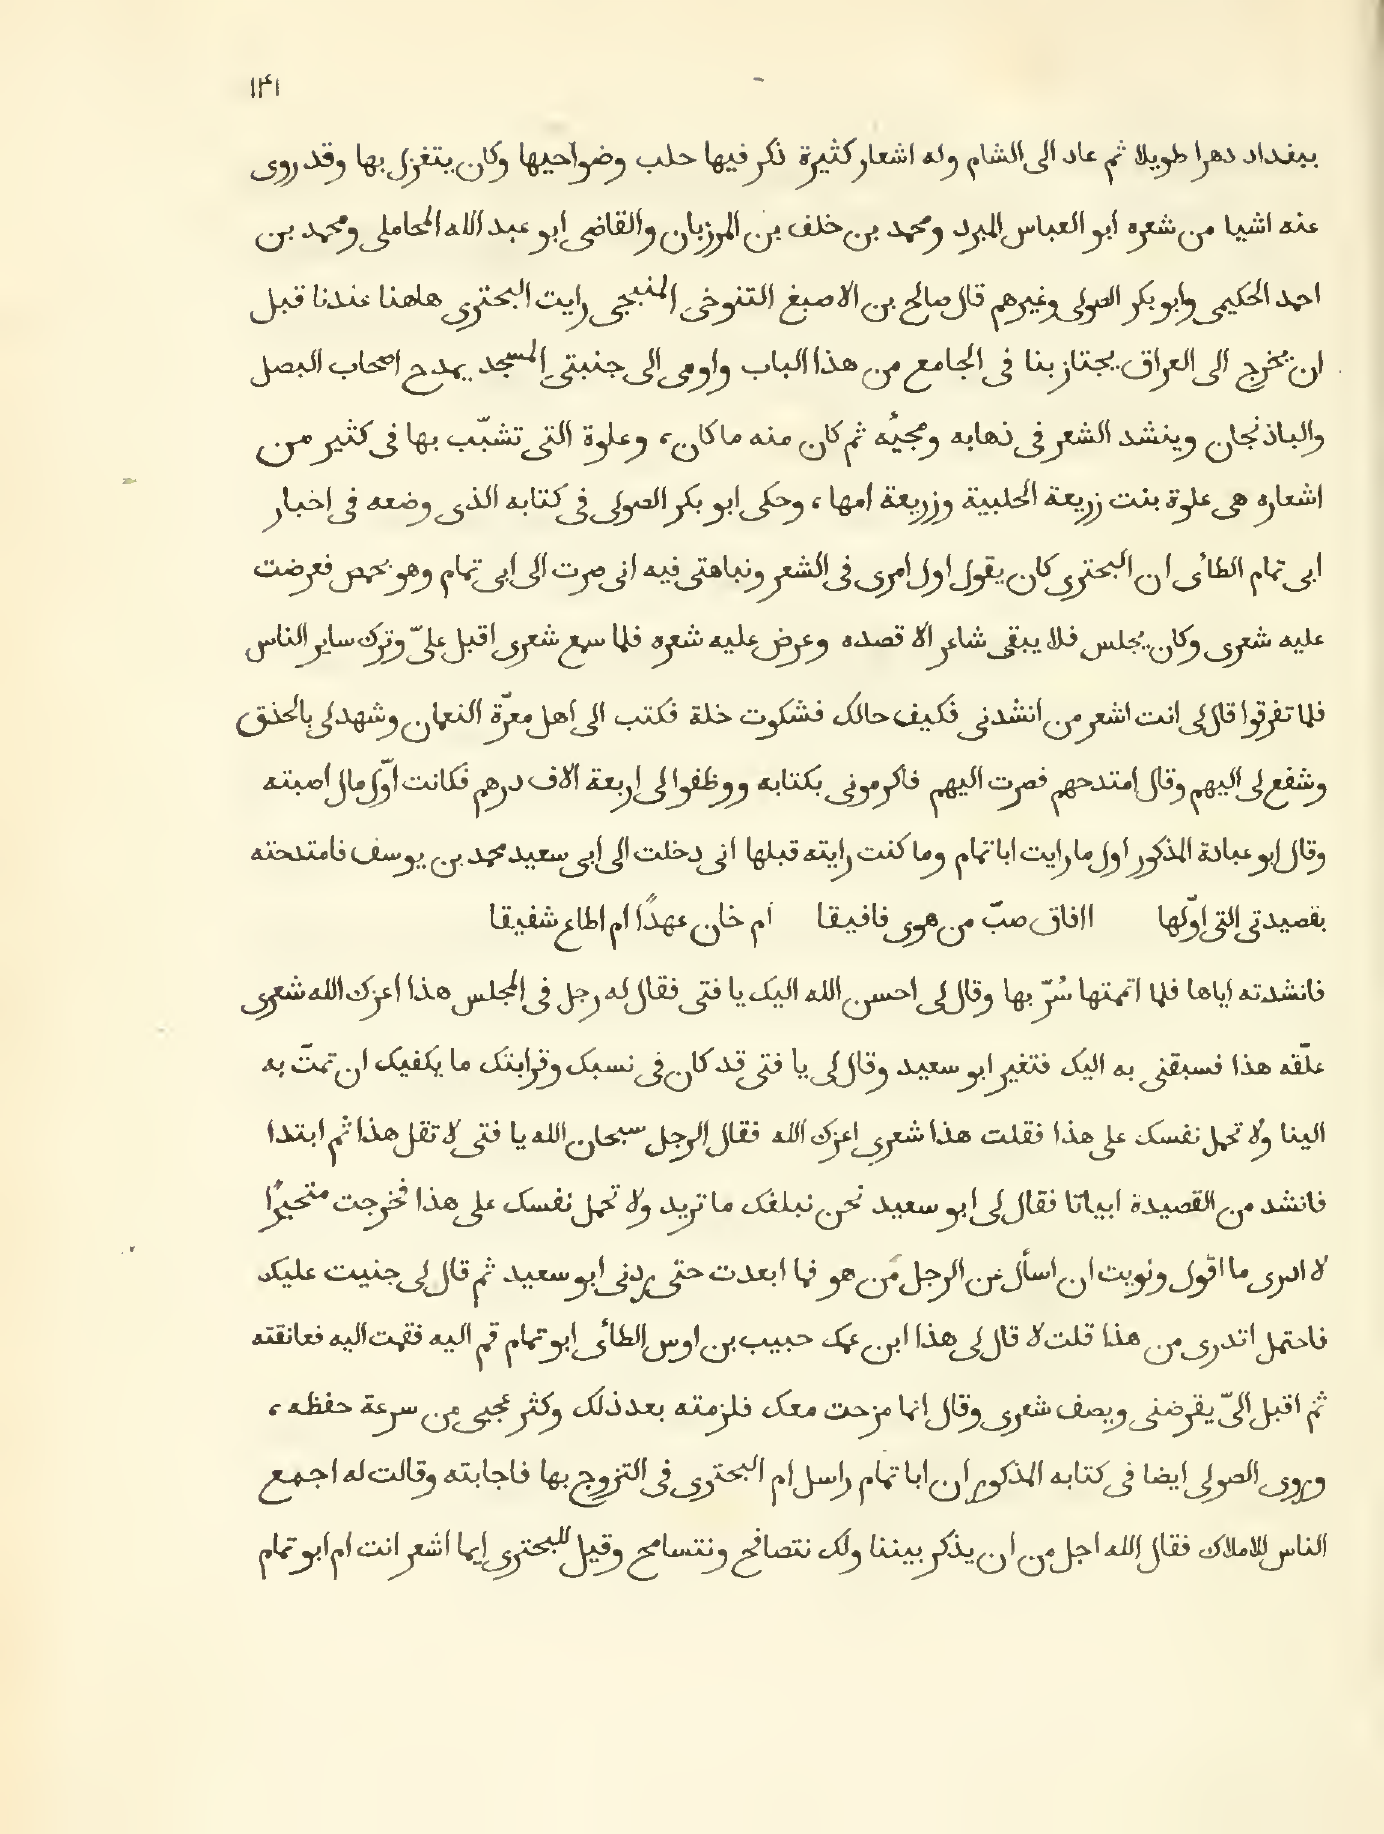 ١٤١
ببغداد دهرا طويلا ثم عاد الى الشام وله اشعار كثيرة ذكر فيها حلب وضواحيها وكان يتغزل بها وقد روى
عنه اشيا من شعره ابو العباس المبرد ومحمد بن خلف بن المرزبان والقاضى ابو عبد الله المحاملى ومحمد بن
احمد الحكيمى وابو بكر الصولى وغيرهم قال صالح بن الاصبغ التنوخى المنبجى رايت البحترى هاهنا عندنا قبل
ان يخرج الى العراق يجتاز بنا فى الجامع من هذا الباب واومى الى جنبتى المسجد يمدح اصحاب البصل
والباذنجان وينشد الشعر فى ذهابه ومجيئه ثم كان منه ما كان، وعلوة التى تشبّب بها فى كثير من
اشعاره هى علوة بنت زريعة الحلبية وزريعة امها، وحكى ابو بكر الصولى فى كتابه الذى وضعه فى اخبار
ابى تمام الطائى ان البحترى كان يقول اول امرى فى الشعر ونباهتى فيه انى صرت الى ابى تمام وهو بحمص فعرضت
عليه شعرى وكان يجلس فلا يبقى شاعر الا قصده وعرض عليه شعره فلما سمع شعرى اقبل علىّ وترك ساير الناس
فلما تفرقوا قال لى انت اشعر من انشدنى فكيف حالك فشكوت خلة فكتب الى اهل معرّة النعمان وشهد لى بالحذق
وشفع لى اليهم وقال امتدحهم فصرت اليهم فاكرمونى بكتابه ووظفوا لى اربعة الاف درهم فكانت اوّل مال اصبته
وقال ابو عبادة المذكور اول ما رايت ابا تمام وما كنت رايته قبلها انى دخلت الى ابى سعيد محمد بن يوسف فامتدحته
بقصيدتى التى اوّلها اافاق صبّ من هوى فافيقا ام خان عهدًا ام اطاع شفيقا
فانشدته اياها فلما اتممتها سُرّ بها وقال لى احسن الله اليك يا فتى فقال له رجل فى المجلس هذا اعزك الله شعرى
علّقه هذا فسبقنى به اليك فتغير ابو سعيد وقال لى يا فتى قد كان فى نسبك وقرابتك ما يكفيك ان تمتّ به
الينا ولا تحمل نفسك على هذا فقلت هذا شعرى اعزك الله فقال الرجل سبحان الله يا فتى لا تقل هذا ثم ابتدا
فانشد من القصيدة ابياتا فقال لى ابو سعيد نحن نبلغك ما تريد ولا تحمل نفسك على هذا فخرجت متحيرًا
لا ادرى ما اقول ونويت ان اسأل عن الرجل مَن هو فما ابعدت حتى ردنى ابو سعيد ثم قال لى جنيت عليك
فاحتمل اتدرى من هذا قلت لا قال لى هذا ابن عمك حبيب بن اوس الطائى ابو تمام قم اليه فقمت اليه فعانقته
ثم اقبل الىّ يقرضنى ويصف شعرى وقال انما مزحت معك فلزمته بعد ذلك وكثر عجبى من سرعة حفظه،
وروى الصولى ايضا فى كتابه المذكور ان ابا تمام راسل ام البحترى فى التزوج بها فاجابته وقالت له اجمع
الناس للاملاك فقال الله اجل من ان يذكر بيننا ولك نتصافح ونتسامح وقيل للبحترى ايما اشعر انت ام ابو تمام